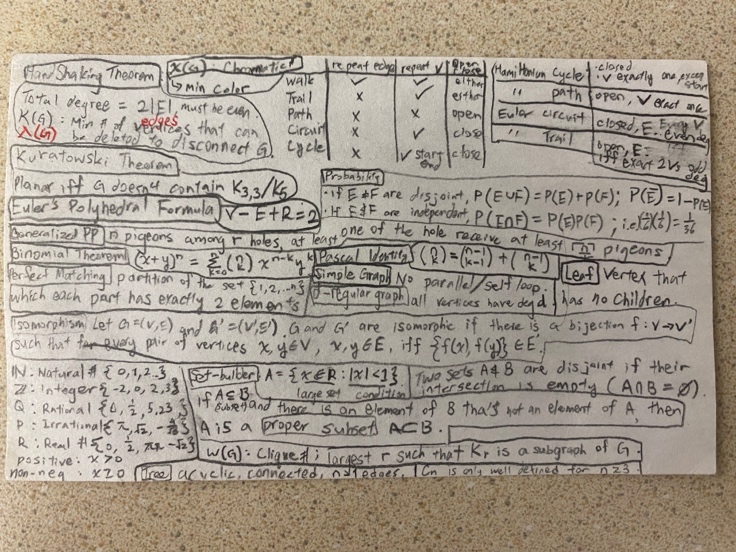 HandShaking Theorem
Total degree = 2|E|, must be even
K(G) : Min # of vertices that can
λ(G) edges
be deleted to disconnect G.
χ(G) : Chromatic #
↳ Min color
repeat edge repeat V open close
Walk ✓ ✓ either
Trail x ✓ either
Path x x open
Circuit x ✓ close
Cycle x ✓ start end close
Hamiltonian Cycle · closed · V exactly one except start
" path open, V exact one
Euler circuit closed, E. Every V even deg
" Trail open, E = iff exact 2 Vs odd deg
Kuratowski Theorem
Planar iff G doesn't contain K3,3/K5
Euler's Polyhedral Formula V-E+R=2
Probability
· if E & F are disjoint, P(E∪F) = P(E)+P(F); P(Ē)=1-P(E)
· If E & F are independent, P(E∩F) = P(E)P(F) ; i.e (1/6)(1/6)=1/36
Generalized PP n pigeons among r holes, at least one of the hole receive at least ⌈n/r⌉ pigeons
Binomial Theorem (x+y)^n = Σ k=0 n (n k) x^n-k y^k
Pascal Identity (n k) = (n-1 k-1) + (n-1 k)
Perfect Matching partition of the set {1,2,...n}
which each part has exactly 2 elements
Simple Graph No parallel/self loop.
d-regular graph all vertices have deg d
Leaf Vertex that
has no children.
Isomorphism Let G=(V,E) and G'=(V',E'), G and G' are isomorphic if there is a bijection f: V→V'
such that for every pair of vertices x,y∈V, x,y∈E, iff {f(x), f(y)}∈E'.
N : Natural # { 0,1,2..}
Z : Integer { -2, 0, 2, 3}
Q : Rational { 1/2, 5,23 }
P : Irrational { π, √2,
R : Real # {0, 1/2, π -√2}
positive : x>0
non-neg : x≥0
Set-builder: A = {x∈R : |x|<1}
large set condition
Two sets A & B are disjoint if their
intersection is empty (A∩B = ∅).
if A⊆B (subset) and there is an element of B that's not an element of A, then
A is a proper subset A⊂B.
ω(G) : Clique # ; largest r such that Kr is a subgraph of G.
Tree acyclic, connected, n-1 edges.
Cn is only well defined for n≥3